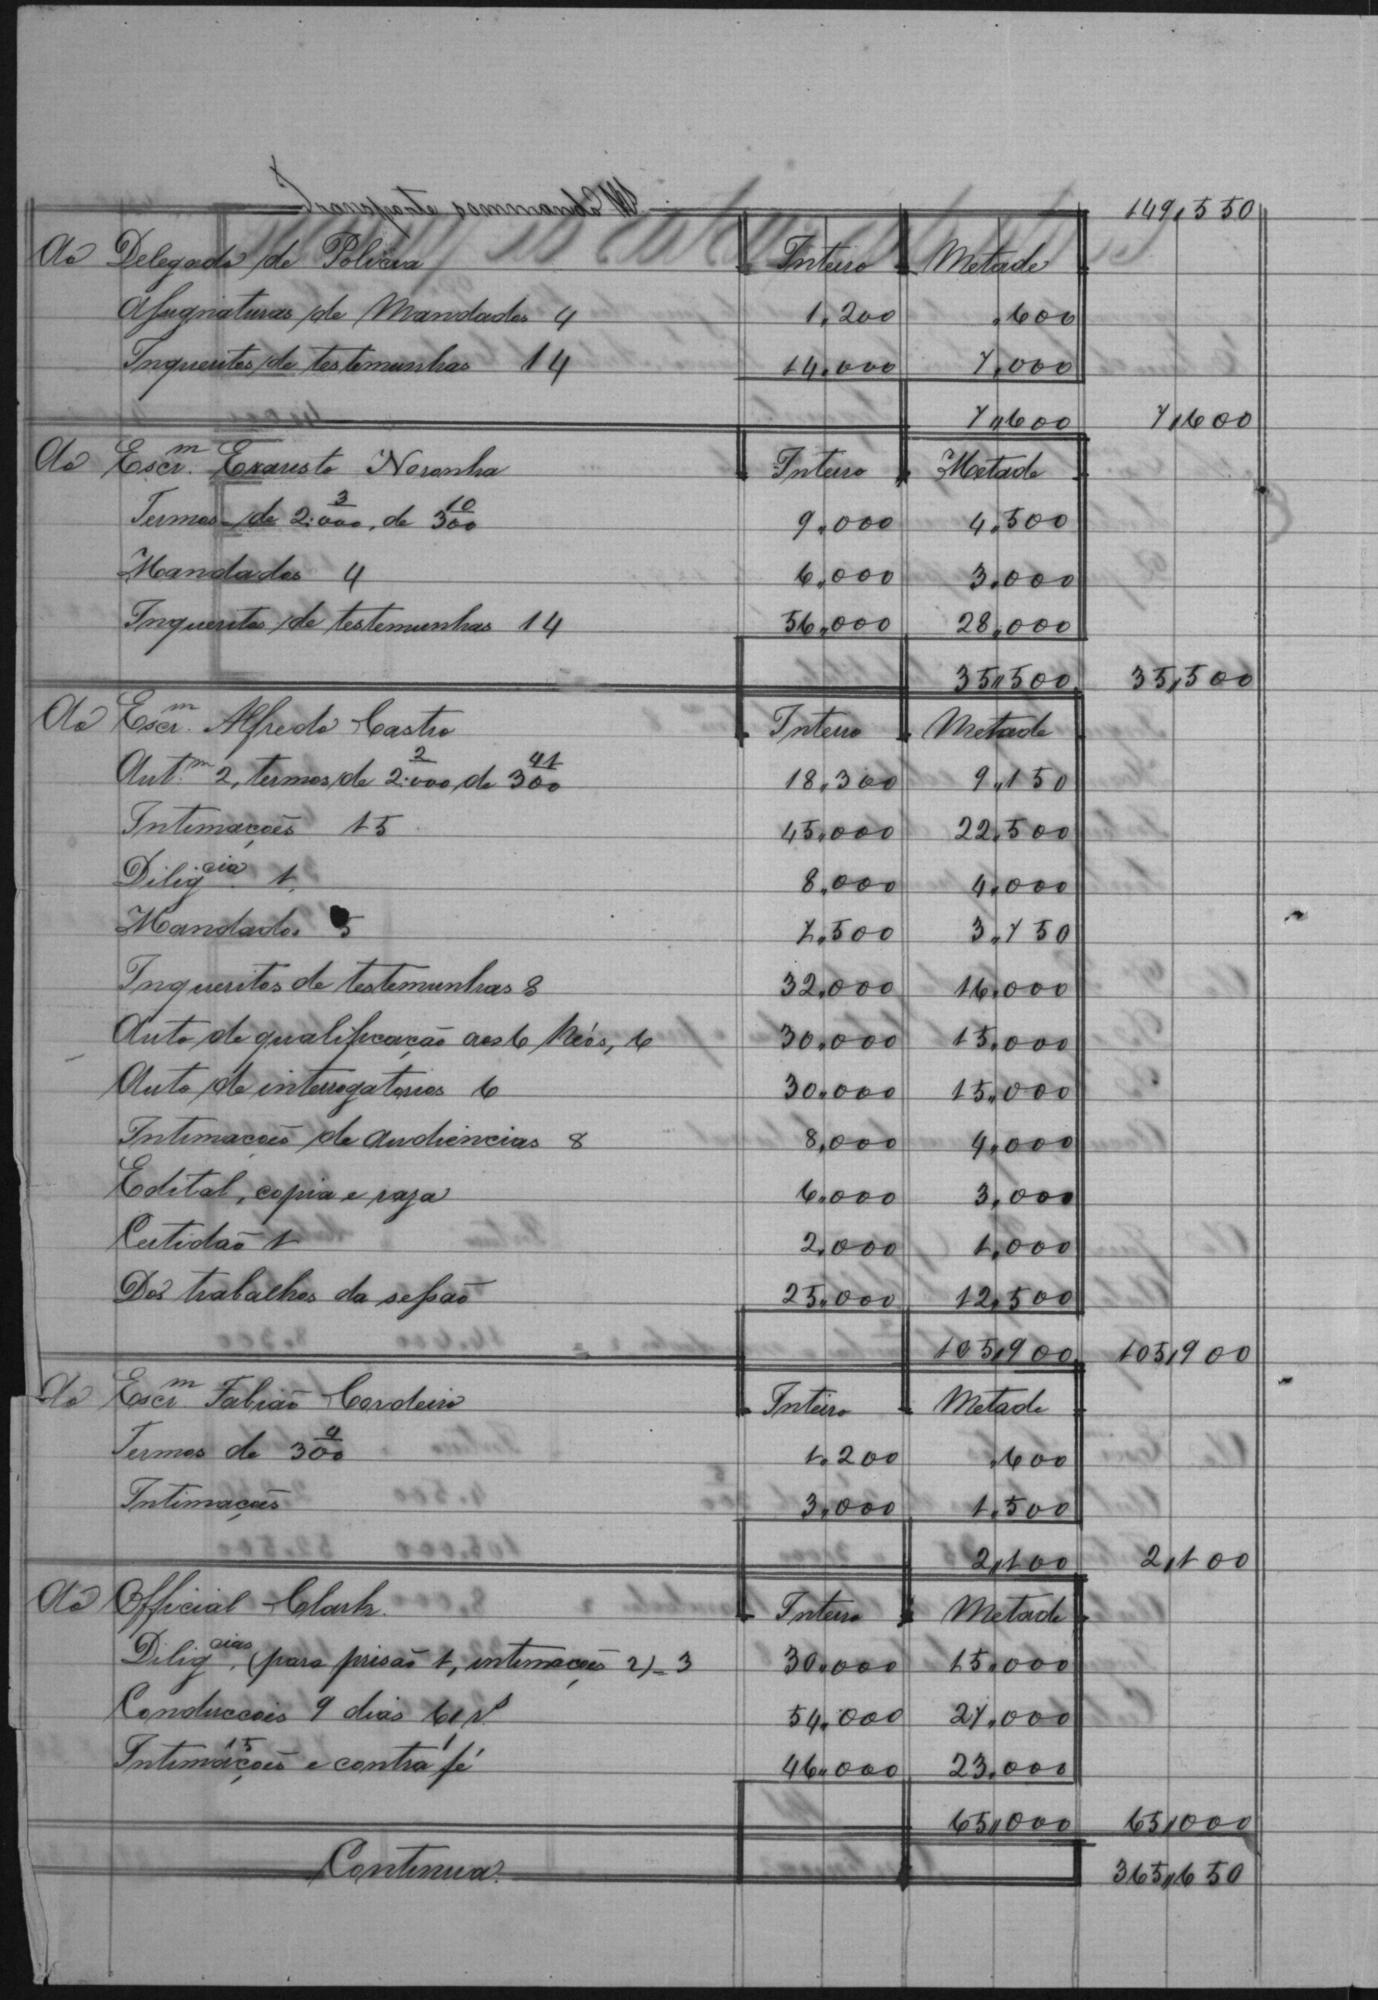 149,550
Ao Delegado de Policia Inteiro Metade
Assignaturas de Mandados 4 1,200 ,600
Inqueritos de testemunhas 14 14,000 7,000
7,600 7,600
Ao Escr.m Evaristo Noronha Inteiro Metade
Termos de 2:000 3, de 300 10 9,000 4,500
Mandados 4 6,000 3,000
Inqueritos de testemunhas 14 56,000 28,000
35,500 35,500
Ao Escr.m Alfredo Castro Inteiro Metade
Aut.m 2, termos de 2:000 2, de 300 41 18,300 9,150
Intimações 15 45,000 22,500
Diligcia 1 8,000 4,000
Mandados 5 7,500 3,750
Inqueritos de testemunhas 8 32,000 16,000
Auto de qualificação aos 6 Réos, 6 30,000 15,000
Auto de interrogatorios 6 30,000 15,000
Intimações de audiencias 8 8,000 4,000
Edital, copia e raza 6,000 3,000
Certidão 1 2,000 1,000
Dos trabalhos da sessão 25,000 12,500
105,900 105,900
Ao Escr.m Fabião Cordeiro Inteiro Metade
Termos de 300 4 1,200 ,600
Intimações 3,000 1,500
2,100 2,100
Ao Official Clark. Inteiro Metade
Diligcias, (para prisão 1, intimações 2) = 3 30,000 15,000
Conducções 9 dias 54,000 27,000
Intimações 15 e contra fé 46,000 23,000
65,000 65,000
Continua. 365,650